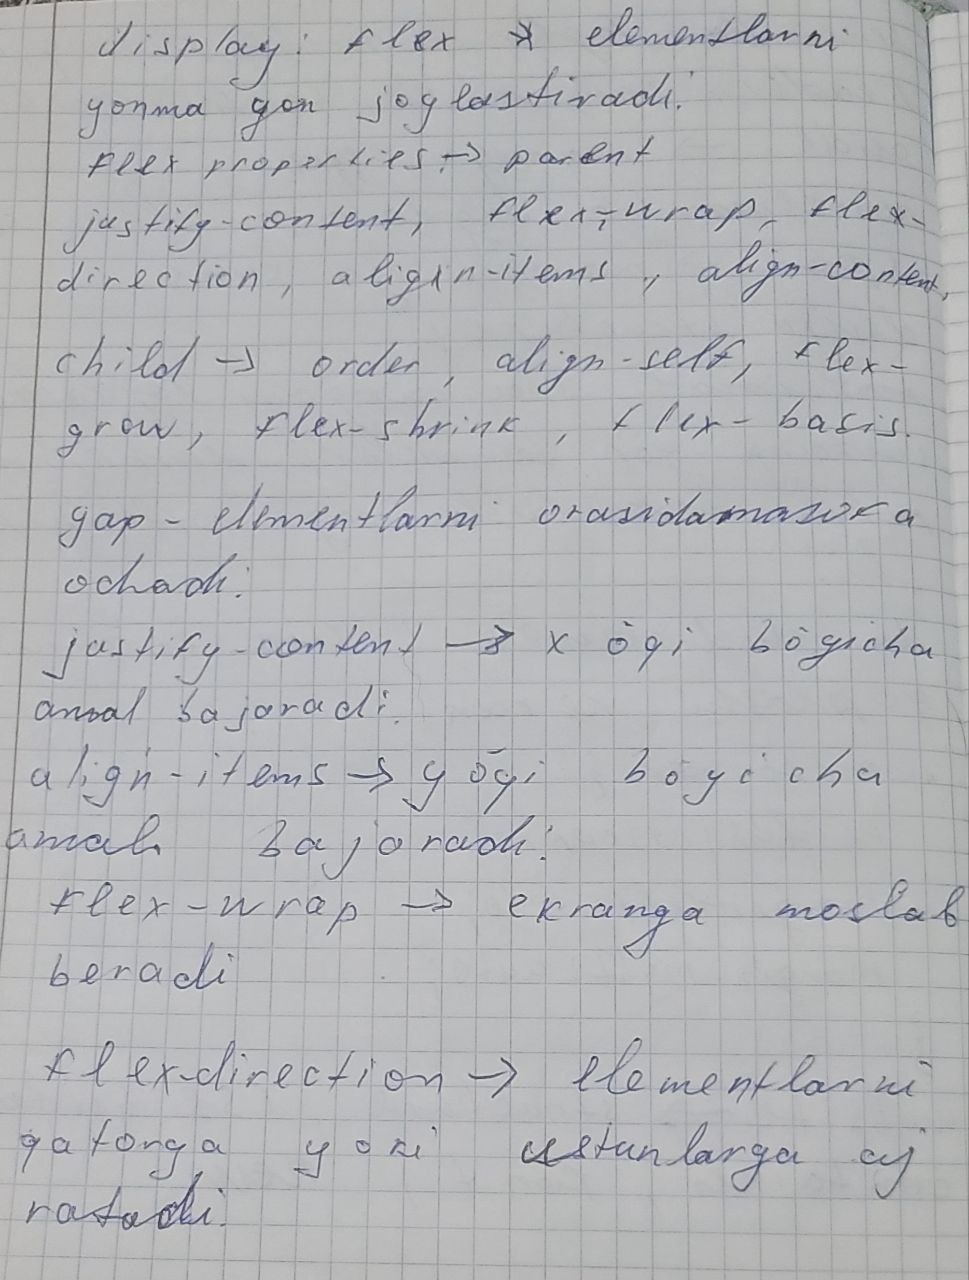 display: flex → elementlarni
yonma yon joylastiradi.
flex properties → parent
justify-content, flex-wrap, flex-
direction, align-items, align-content,
child → order, align-self, flex-
grow, flex-shrink, flex-basis.
gap - elementlarni orasidamasofa
ochadi.
justify-content → x ōqi bōyicha
amal bajaradi.
align-items → y ōqi bōyicha
amal bajoradi.
flex-wrap → ekranga moslab
beradi
flex-direction → elementlarni
qatorga yoki ustunlarga aj
ratadi.